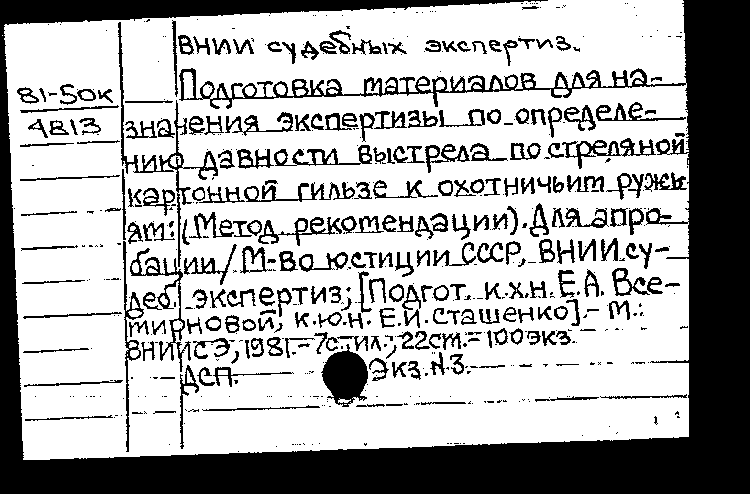 ВНИИ судебных экспертиз.
81-50к
4813
Подготовка материалов для на-
значения экспертизы по определе-
нию давности выстрела по стреляной
картонной гильзе к охотничьим ружь-
ям: (Метод. рекомендации). Для апро-
бации / М-во юстиции СССР, ВНИИ су-
деб. экспертиз; [Подгот. к.х.н. Е.А. Все-
мирновой, к.ю.н. Е.И. Сташенко]. - М.:
ВНИИСЭ, 1981. - 7с. ил.; 22см. - 100экз.
ДСП. Экз. N3.